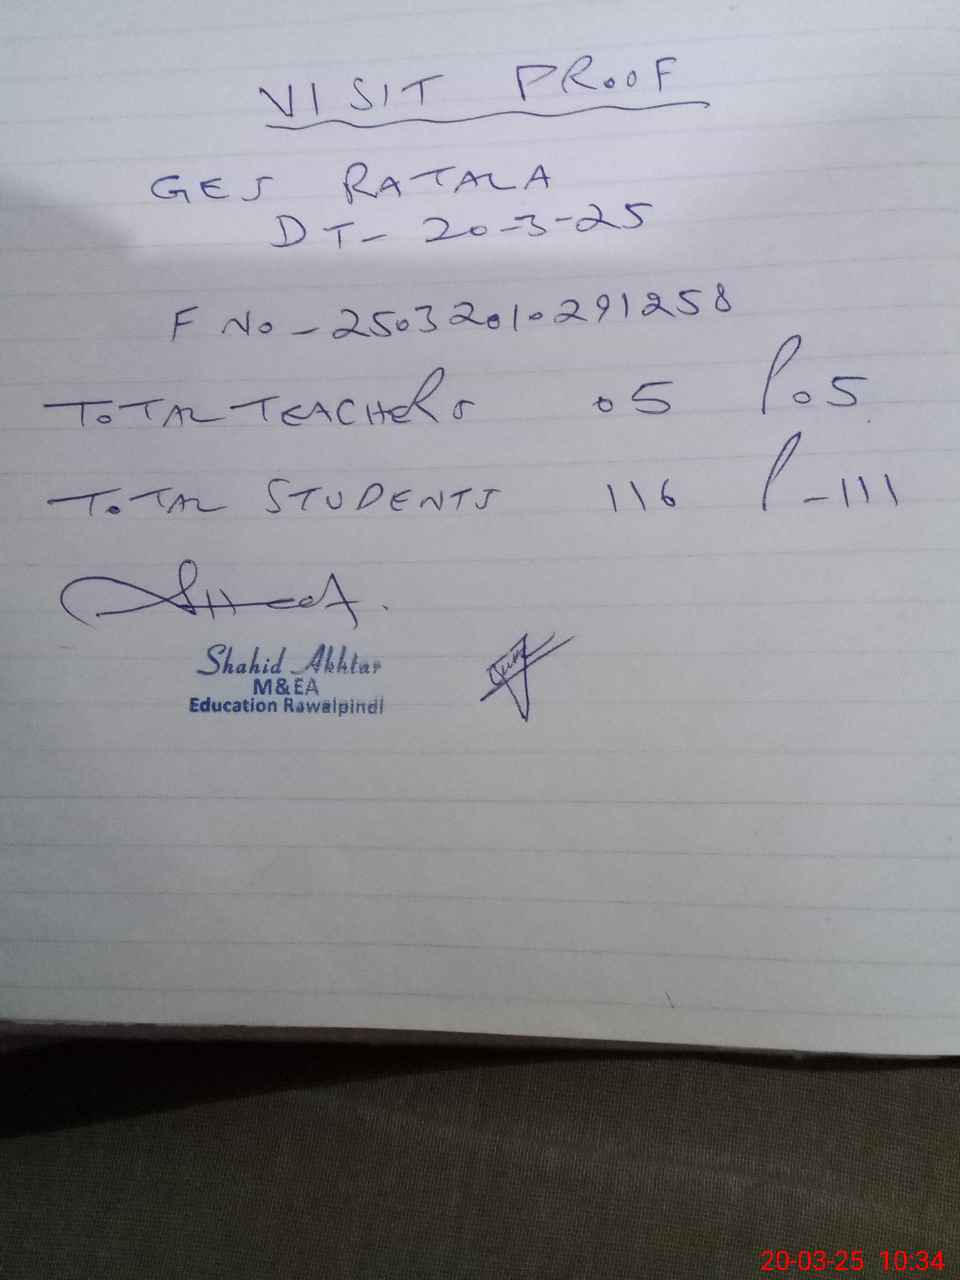 VISIT PROOF
GES RATALA
DT- 20-3-25
F No - 25032010291258
TOTAL TEACHERS 05 P 05
TOTAL STUDENTS 116 P - 111
Shahid Akhtar
M&EA
Education Rawalpindi
20-03-25 10:34